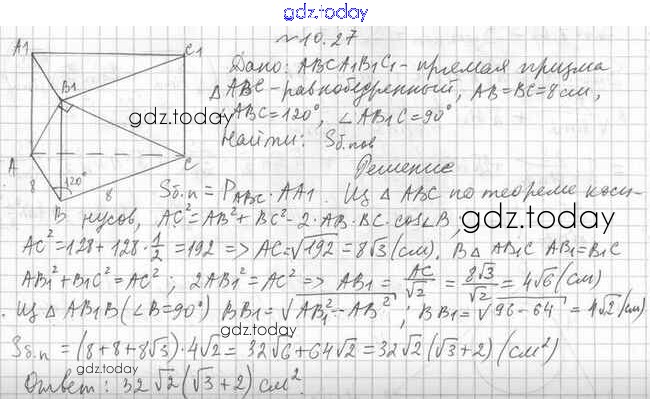 gdz.today
№10.27
A1 C1 B1 A C B 8 120° 8
Дано: ABCA1B1C1-прямая призма
△ABC-равнобедренный, AB=BC=8см,
gdz.today
∠ABC=120°, ∠AB1C=90°
gdz.today
Найти: Sб.пов
Решение
Sб.п = PABC · AA1. Из △ABC по теореме коси-
нусов, AC²=AB²+BC²-2·AB·BC·cos∠B;
gdz.today
gdz.today
AC²=128+128·1/2=192 => AC=√192=8√3(см). В △AB1C AB1=B1C
AB1²+B1C²=AC²; 2AB1²=AC² => AB1=AC/√2=8√3/√2=4√6(см)
Из △AB1B(∠B=90°) BB1=√AB1²-AB²; BB1=√96-64=4√2(см)
gdz.today
Sб.п=(8+8+8√3)·4√2=32√6+64√2=32√2(√3+2)(см²)
Ответ: 32√2(√3+2)см².
gdz.today